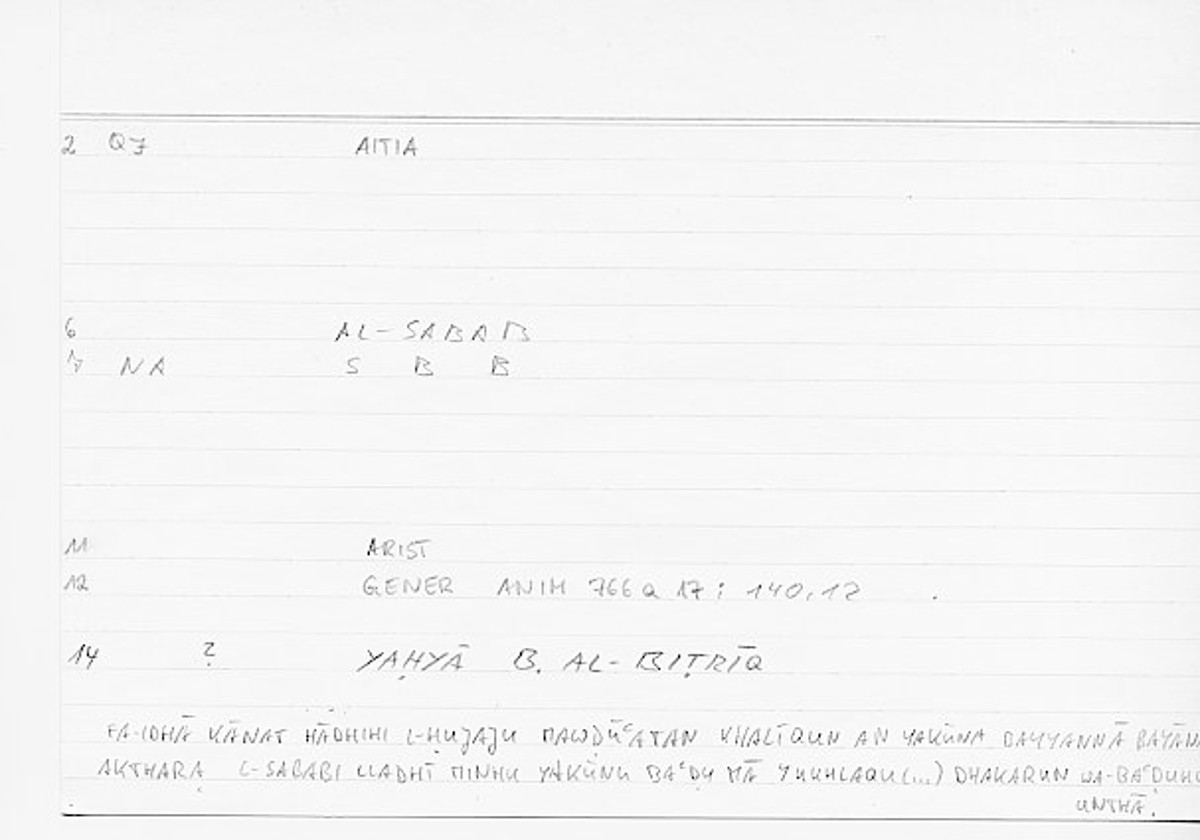 2 Q7 AITIA
6 AL-SABAB
7 NA S B B
11 ARIST
12 GENER ANIM 766 a 17 ; 140,12 .
14 ? YAḤYĀ B. AL-BIṬRĪQ
FA-IDHĀ KĀNAT HĀDHIHI L-ḤUJAJU MAWḌŪʿATAN KHALĪQUN AN YAKŪNA BAYYANNĀ BAYĀN
AKTHARA L-SABABI LLADHĪ MINHU YAKŪNU BAʿḌU MĀ YUKHLAQU (...) DHAKARUN WA-BAʿḌUHU
UNTHĀ.